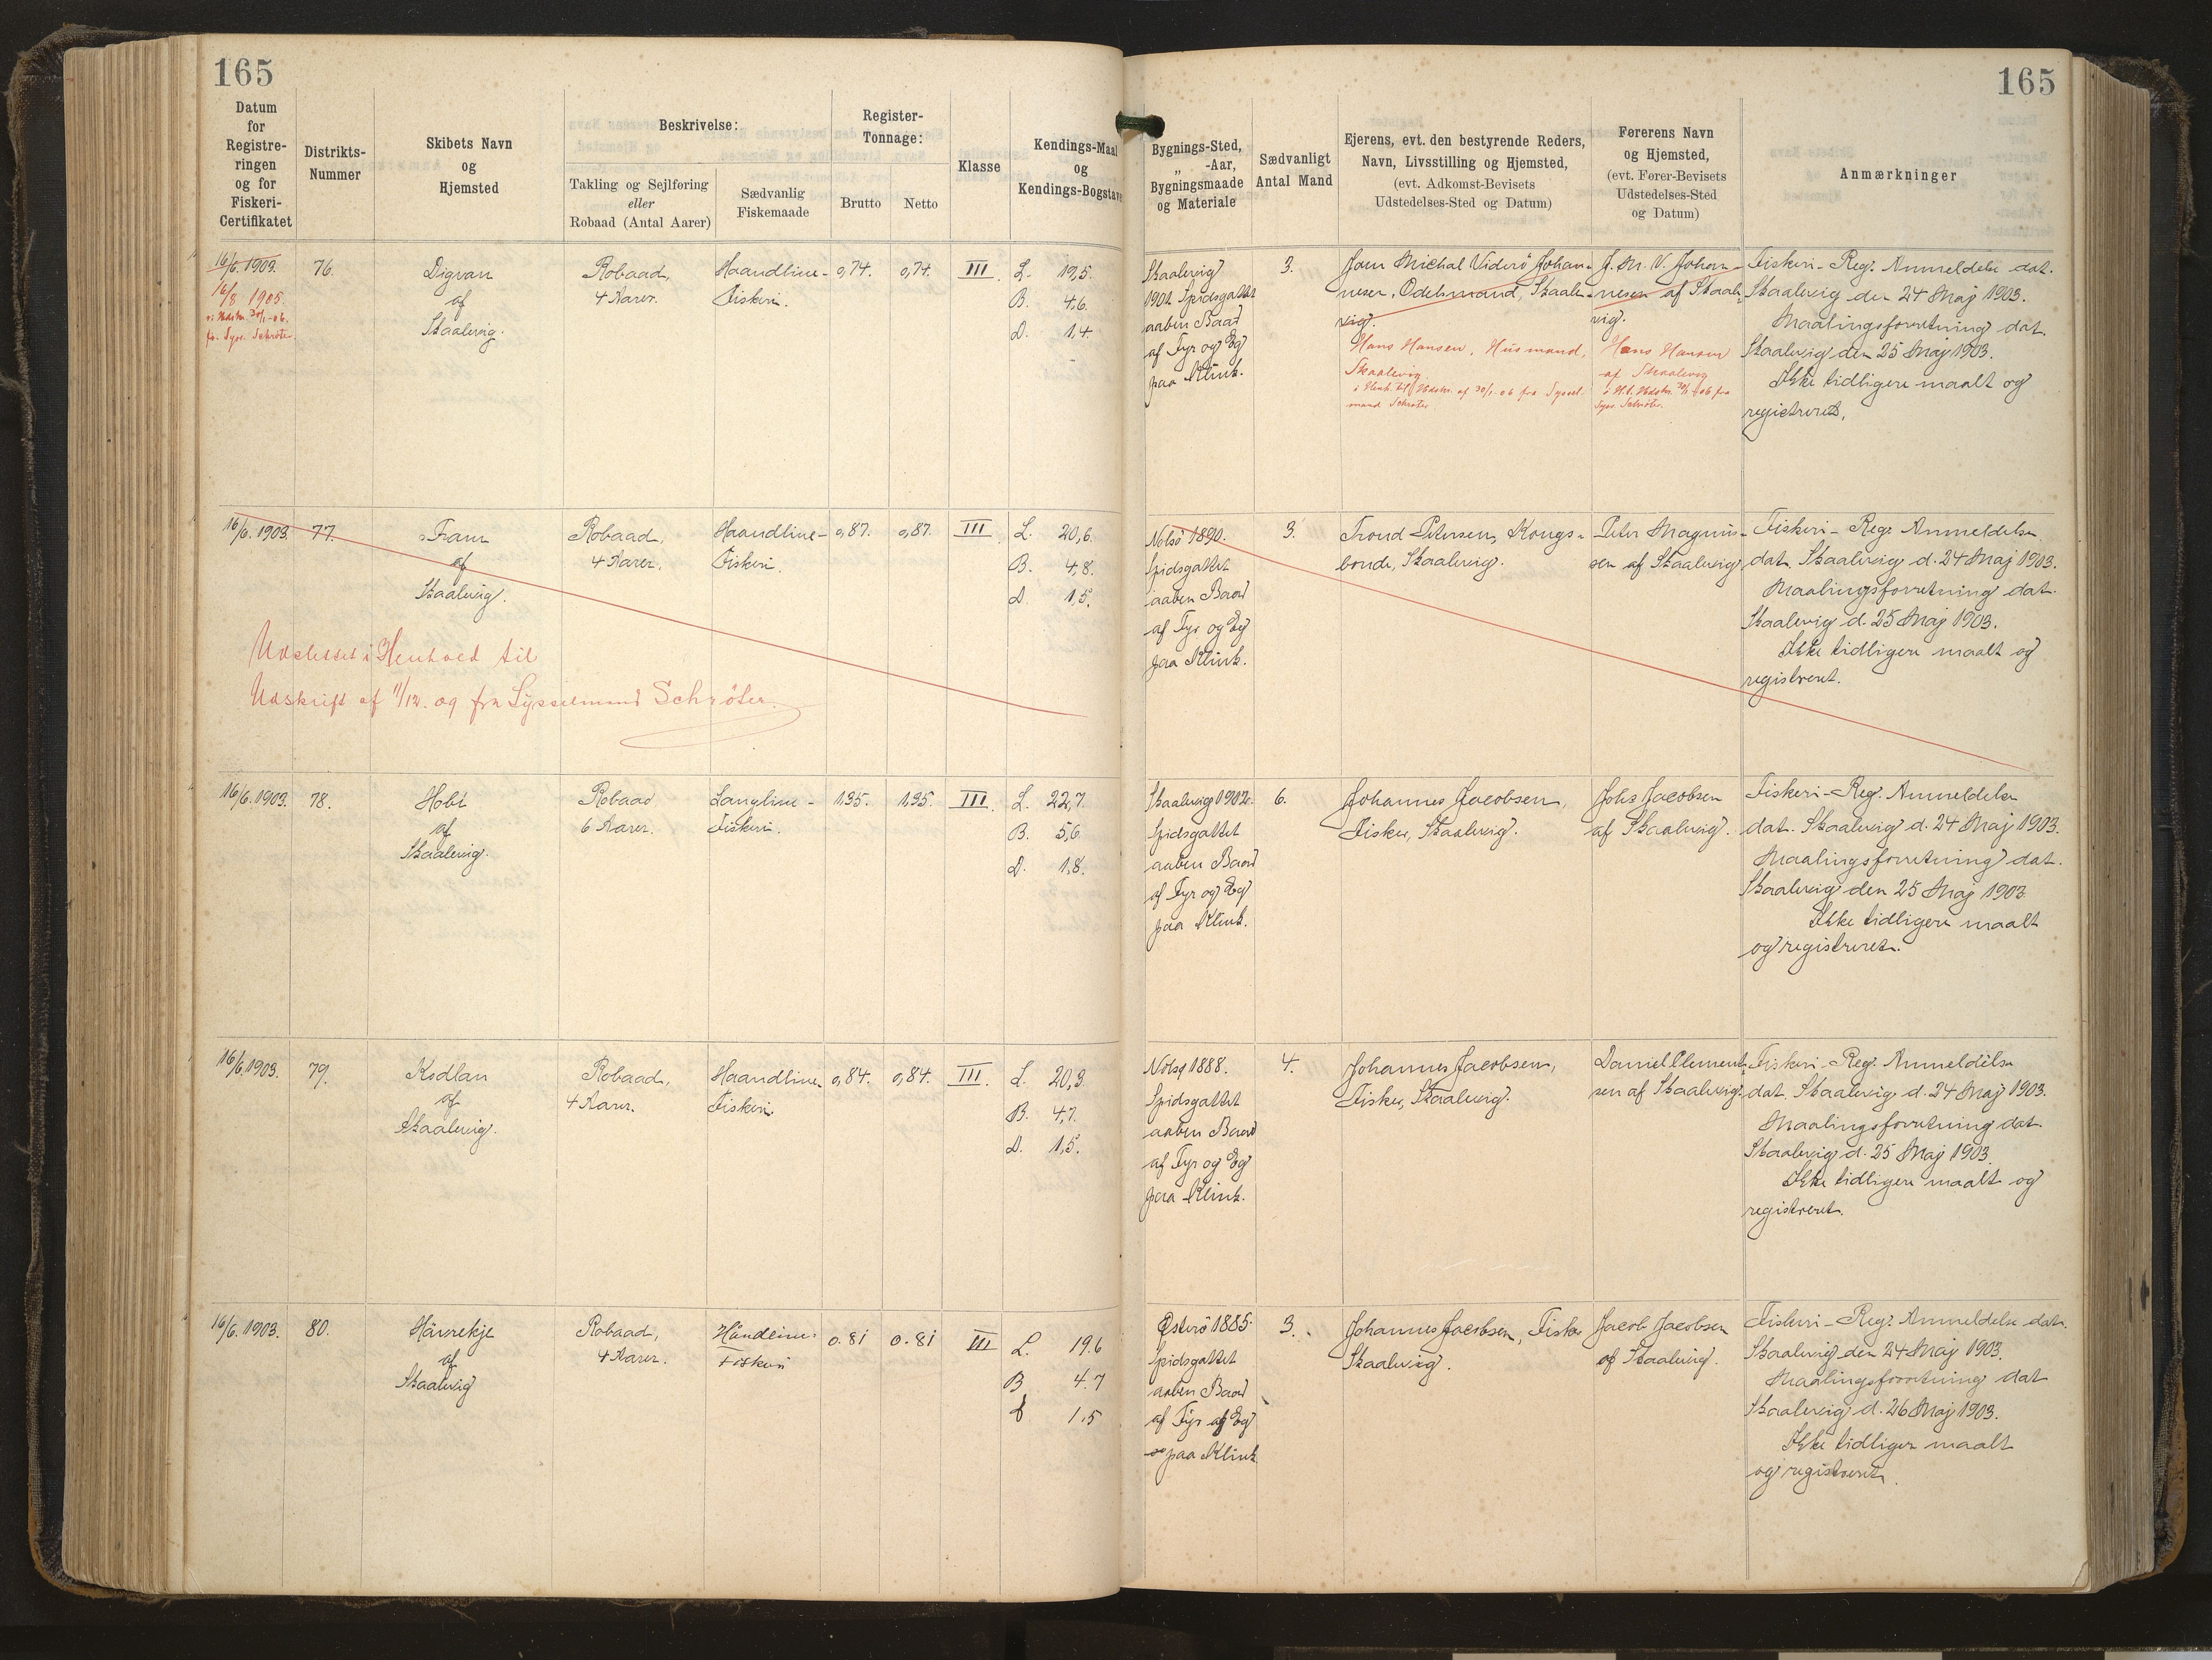 165
165
Datum
for
Registre-
ringen
og for
Fiskeri-
Certifikatet
Distrikts-
Nummer
Skibets Navn
og
Hjemsted
Beskrivelse:
Takling og Sejlføring
eller
Robaad (Antal Aarer)
Sædvanlig
Fiskemaade
Register-
Tonnage:
Brutto
Netto
Klasse
Kendings-Maal
og
Kendings-Bogstave
Bygnings-Sted,
„ -Aar,
Bygningsmaade
og Materiale
Sædvanligt
Antal Mand
Ejerens, evt. den bestyrende Reders,
Navn, Livsstilling og Hjemsted,
(evt. Adkomst-Bevisets
Udstedelses-Sted og Datum)
Førerens Navn
og Hjemsted,
(evt. Fører-Bevisets
Udstedelses-Sted
og Datum)
Anmærkninger
16/6. 1903.
16/8 1905.
Udskr. 30/1-06.
fr. Syss. Schrøter.
76.
Digvan
af
Skaalevig.
Robaad,
4 Aarer.
Haandline-
Fiskeri.
0,74.
0,74.
III
L. 19,5.
B. 4,6.
D. 1,4.
Skaalevig
1901 Spidsgattet
aaben Baad
af Fyr og Eg
paa Klink.
3.
Joen Michal Viderö Johan-
nesen, Odelsmand, Skaale-
vig.
Hans Hansen, Husmand,
Skaalevig
i Henh. til Udskr. af 30/1-06 fra Syssel-
mand Schrøter
J. M. V. Johan-
nesen af Skaale-
vig.
Hans Hansen
af Skaalevig
i H.t. Udskr. 30/1-06 fra
Syss. Schrøter.
Fiskeri-Reg. Anmeldelse dat.
Skaalevig den 24 Maj 1903.
Maalingsforretning dat.
Skaalevig den 25 Maj 1903.
Ikke tidligere maalt og
registreret.
16/6. 1903.
77.
Fram
af
Skaalevig.
Robaad,
4 Aarer.
Haandline-
Fiskeri.
0,87.
0,87.
III
L. 20,6.
B. 4,8.
D. 1,5.
Nolsö 1890.
Spidsgattet
aaben Baad
af Fyr og Eg
paa Klink.
3.
Trond Petersen, Kongs-
bonde, Skaalevig.
Peter Magnus-
sen af Skaalevig
Fiskeri-Reg. Anmeldelse
dat. Skaalevig d. 24 Maj 1903.
Maalingsforretning dat.
Skaalevig d. 25 Maj 1903.
Ikke tidligere maalt og
registreret.
Udslettet i Henhold til
Udskrift af 11/12. 09 fra Sysselmand Schröter.
16/6. 1903.
78.
af
Skaalevig.
Robaad
6 Aarer.
Langline-
Fiskeri.
1,35.
1,35.
III
L. 22,7.
B. 5,6
D. 1,8.
Skaalevig 1902.
Spidsgattet
aaben Baad
af Fyr og Eg
paa Klink.
6.
Johannes Jacobsen,
Fisker, Skaalevig.
Johs Jacobsen
af Skaalevig.
Fiskeri-Reg. Anmeldelse
dat. Skaalevig d. 24 Maj 1903.
Maalingsforretning dat.
Skaalevig den 25 Maj 1903
Ikke tidligere maalt
og registreret.
16/6. 1903.
79.
af
Skaalevig.
Robaad,
4 Aarer.
Haandline-
Fiskeri.
0,84.
0,84.
III.
L. 20,3
B. 4,7.
D. 1,5.
1888.
Spidsgattet
aaben Baad
af Fyr og Eg
paa Klink.
4.
Johannes Jacobsen,
Fisker, Skaalevig.
Daniel Clement-
sen af Skaalevig.
Fiskeri-Reg. Anmeldelse
dat. Skaalevig d. 24 Maj 1903.
Maalingsforretning dat.
Skaalevig d. 25 Maj 1903
Ikke tidligere maalt og
registreret.
16/6. 1903.
80.
af
Skaalevig
Robaad,
4 Aarer.
Håndline-
Fiskeri
0.81
0.81
III
L. 19.6
B 4.7
D 1.5
Österö 1885.
Spidsgattet
aaben Baad
af Fyr og Eg
paa Klink
3.
Johannes Jacobsen, Fisker
Skaalevig.
Jacob Jacobsen
af Skaalevig.
Fiskeri-Reg. Anmeldelse dat.
Skaalevig den 24 Maj 1903.
Maalingsforretning dat
Skaalevig d. 26 Maj 1903.
Ikke tidligere maalt
og registreret.